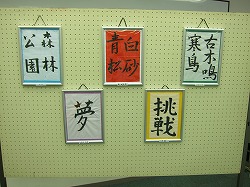 森林
公園
白砂
青松
古木鳴
寒鳥
夢
挑戦